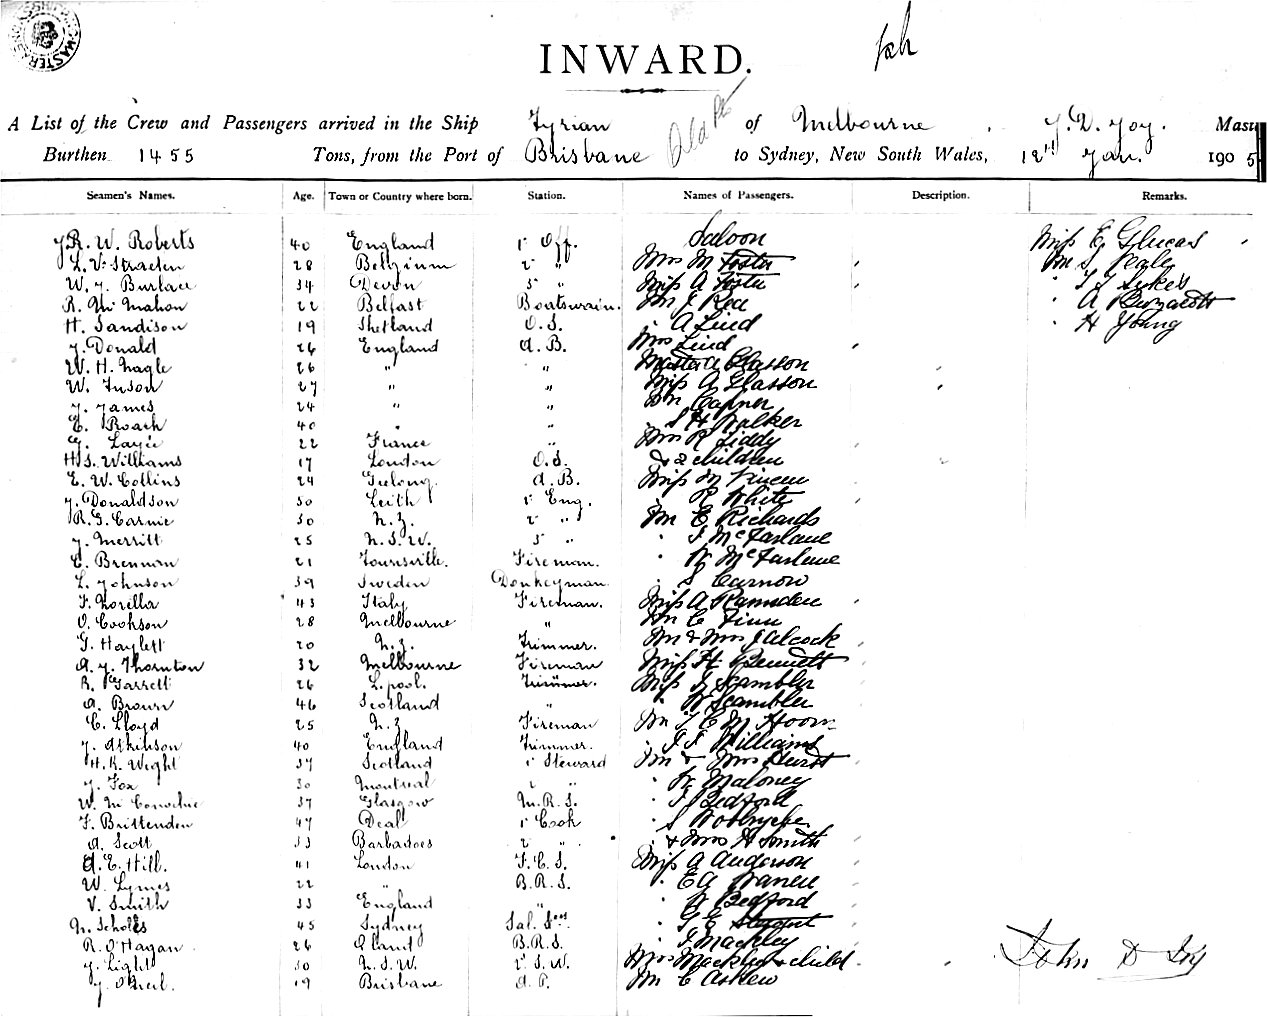 INWARD.
A List of the Crew and Passengers arrived in the Ship Tyrian of Melbourne J. D. Joy. Mas
Burthen 1455 Tons, from the Port of Brisbane to Sydney, New South Wales, 12th Jan. 1905
Seamen's Names. Age. Town or Country where born. Station. Names of Passengers. Description. Remarks.
J. R. W. Roberts 40 England 1 Off. Saloon Miss E Glucas
L. V. Straeten 28 Belgium 2 " Mrs M Foster Mr J Peale
W. J. Burlace 34 Devon 3 " Miss A Foster " Sykes
R. McMahon 22 Belfast Boatswain. Mr J Roe " A
H. Sandison 19 Shetland O.S. " A Lind " H Young
J. Donald 26 England A.B. Mrs Lind
W. H. Nagle 26 " " Master A Glasson
W. Tuson 27 " " Miss A Glasson
J. James 24 " " Mr Capner
E. Roach 40 " " " S H Walker
G. 22 France " Mrs R Liddy
H. S. Williams 17 London O.S. & 2 children
E. W. Collins 24 Geelong A.B. Miss M
J. Donaldson 50 Leith 1 Eng. " R White
R. G. Carnie 30 N.Z. 2 " Mr E Richards
J. Merritt 25 N.S.W. 3 " " J McFarlane
E. Brennan 21 Townsville. Fireman. " W McFarlane
L. Johnson 39 Sweden Donkeyman. " S Carnow
F. Norella 43 Italy Fireman. Miss A Ramsden
O. Cookson 28 Melbourne " Mr C Finn
G. Haylett 20 N.Z. Trimmer. Mr & Mrs J Alcock
A. J. Thornton 32 Melbourne Fireman Miss H. Bennett
R. Garrett 26 L.pool. Trimmer. Miss J Scambler
A. Brown 46 Scotland " " W Scambler
C. Lloyd 25 N.Z Fireman Mr T E M Hoom
J. Atkinson 40 England Trimmer. " J J Williams
H. K. Wight 37 Scotland 1 Steward Mr & Mrs Hurst
J. Fox 30 Montreal 2 " " W Maloney
W. 37 Glasgow M.R.S. " J Bedford
F. Brittenden 47 Deal 1 Cook " S
A. Scott 33 Barbadoes 2 " " & Mrs H Smith
A. E. Hill. 41 London F.C.S. Miss A Anderson
W. Lymes 22 " B.R.S. " E A
V. Smith 33 England " " A Bedford
N. Scholes 45 Sydney Sal. " G E Stewart
R. O'Hagan 26 B.R.S. " J Mackley
J. Light 30 N.S.W. 2 S.W. Mrs Mackley & child
J. O'Neil. 19 Brisbane A.P. Mr C Askew
John D Joy